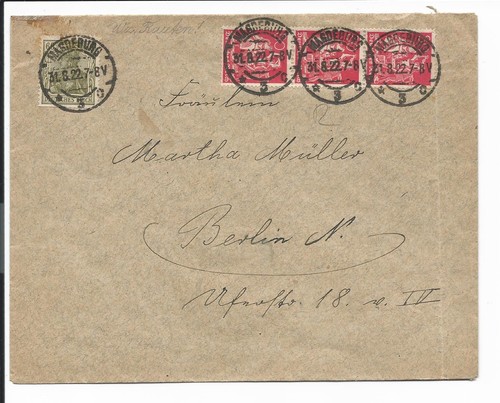 MAGDEBURG
31.8.22.7-8V
* 3 c
MAGDEBURG
31.8.22.7-8V
* 3 c
MAGDEBURG
31.8.22.7-8V
* 3 c
MAGDEBURG
31.8.22.7-8V
* 3 c
Fräulein
Martha Müller
Berlin N.
Uferstr. 18. v. IV